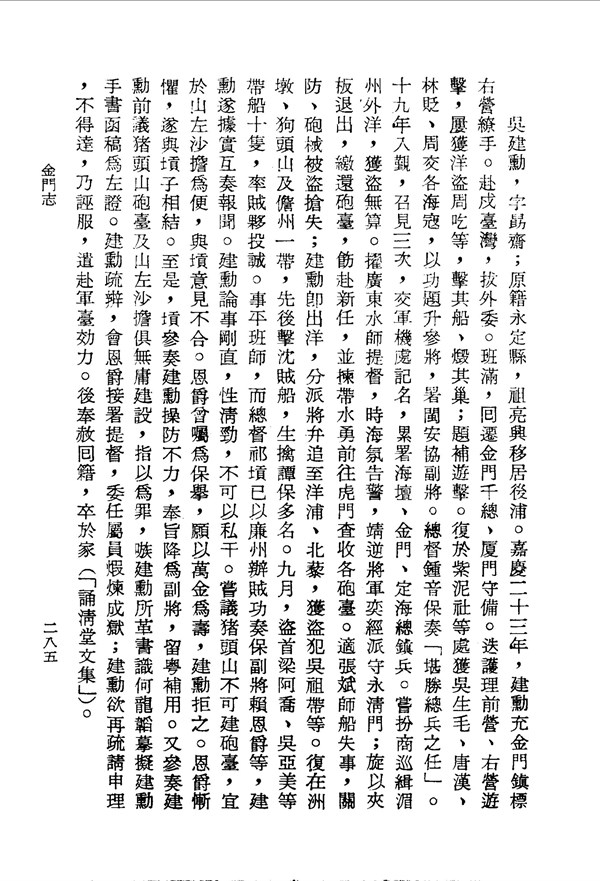 吳建勳，字勗齋；原籍永定縣，祖亮興移居後浦。嘉慶二十三年，建勳充金門鎮標
右營繚手。赴戍臺灣，拔外委。班滿，囘遷金門千總、厦門守備。迭護理前營、右營遊
擊，屢獲洋盜周吃等，擊其船、燬其巢；題補遊擊。復於紫泥社等處獲吳生毛、唐漢、
林貶、周交各海寇，以功題升參將，署閩安協副將。總督鍾音保奏「堪勝總兵之任」。
十九年入覲，召見三次，交軍機處記名，累署海壇、金門、定海總鎮兵。嘗扮商巡緝湄
州外洋，獲盜無算。擢廣東水師提督，時海氛告警，靖逆將軍奕經派守永淸門；旋以夾
板退出，繳還砲臺，飭赴新任，並揀帶水勇前往虎門査收各砲臺。適張斌師船失事，關
防、砲械被盜搶失；建勳卽出洋，分派將弁追至洋浦、北藜，獲盜犯吳祖帶等。復在洲
墩、狗頭山及儋州一帶，先後擊沈賊船，生擒譚保多名。九月，盜首梁阿喬、吳亞美等
帶船十隻，率賊夥投誠。事平班師，而總督祁𡎴已以廉州辦賊功奏保副將賴恩爵等，建
勳遂據實互奏報聞。建勳論事剛直，性淸勁，不可以私干。嘗議猪頭山不可建砲臺，宜
於山左沙擔爲便，與𡎴意見不合。恩爵曾囑爲保擧，願以萬金爲壽，建勳拒之。恩爵慚
懼，遂與𡎴子相結。至是，𡎴參奏建勳操防不力，奉旨降爲副將，留粤補用。又參奏建
勳前議猪頭山砲臺及山左沙擔俱無庸建設，指以爲罪，嗾建勳所革書識何龍韜摹擬建勳
手書函稿爲左證。建勳疏辨，會恩爵接署提督，委任屬員煆煉成獄；建勳欲再疏請申理
，不得達，乃誣服，遣赴軍臺効力。後奉赦囘籍，卒於家（「誦淸堂文集」）。
金門志
二八五